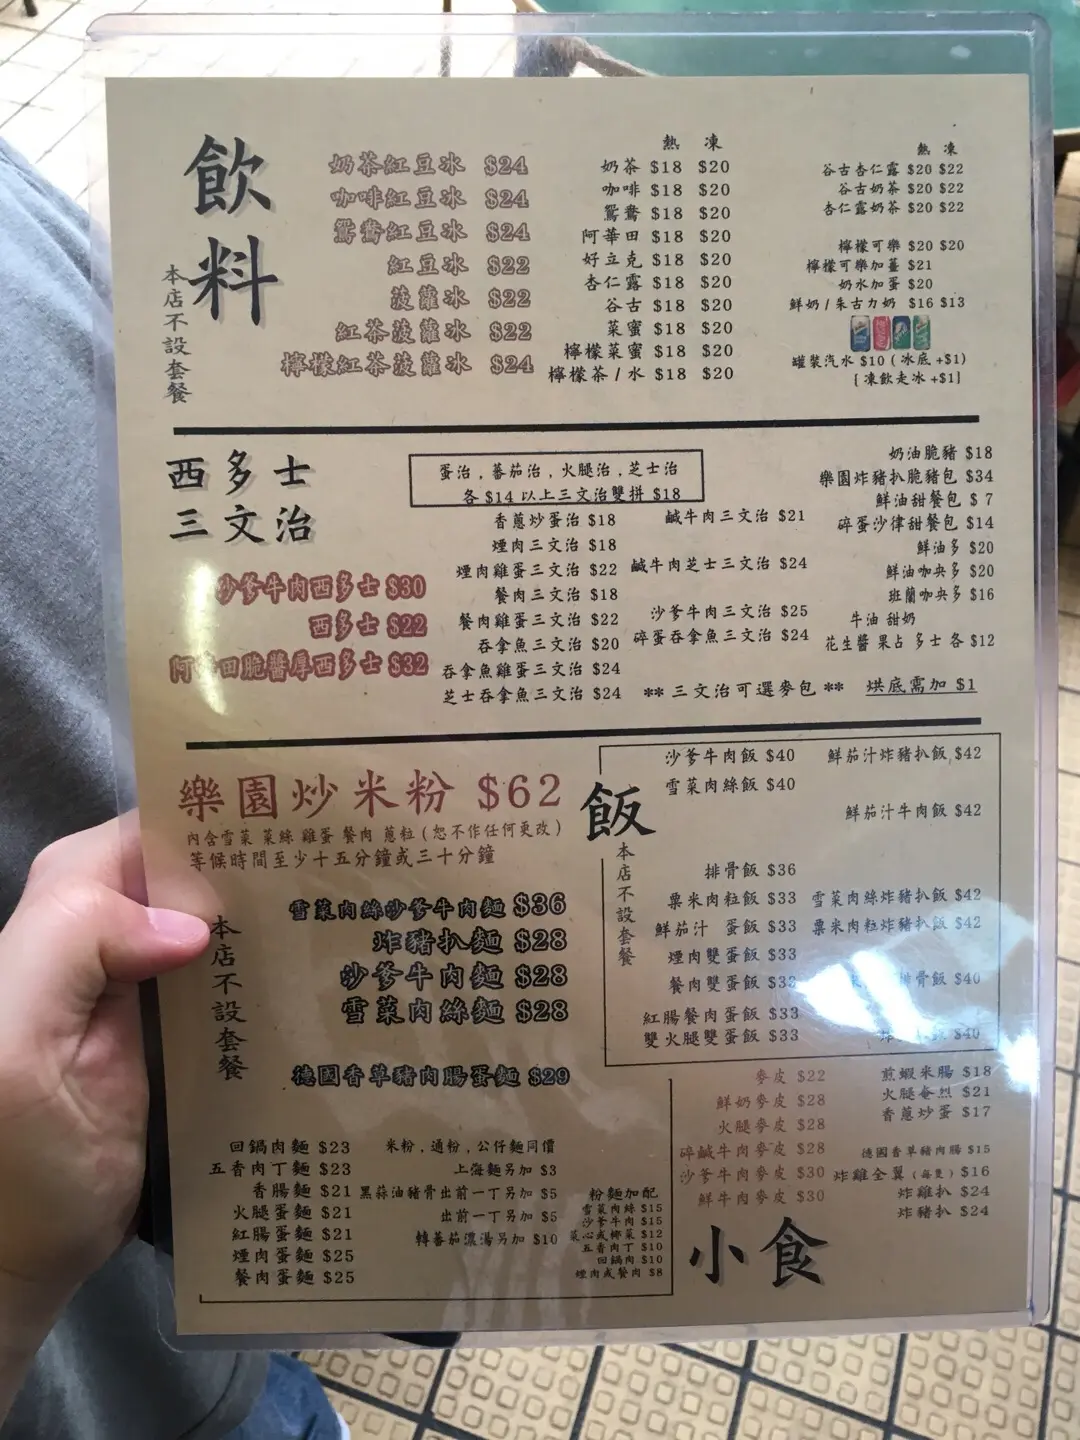 飲料
本店不設套餐
奶茶紅豆冰 $24
咖啡紅豆冰 $24
鴛鴦紅豆冰 $24
紅豆冰 $22
菠蘿冰 $22
紅茶菠蘿冰 $22
檸檬紅茶菠蘿冰 $24
熱 凍
奶茶 $18 $20
咖啡 $18 $20
鴛鴦 $18 $20
阿華田 $18 $20
好立克 $18 $20
杏仁露 $18 $20
谷古 $18 $20
菜蜜 $18 $20
檸檬菜蜜 $18 $20
檸檬茶/水 $18 $20
熱 凍
谷古杏仁露 $20 $22
谷古奶茶 $20 $22
杏仁露奶茶 $20 $22
檸檬可樂 $20 $20
檸檬可樂加薑 $21
奶水加蛋 $20
鮮奶/朱古力奶 $16 $13
罐裝汽水 $10 (冰底 +$1)
[凍飲走冰 +$1]
西多士
三文治
沙爹牛肉西多士 $30
西多士 $22
阿華田脆醬厚西多士 $32
蛋治,蕃茄治,火腿治,芝士治
各 $14 以上三文治雙拼 $18
香蔥炒蛋治 $18
煙肉三文治 $18
煙肉雞蛋三文治 $22
餐肉三文治 $18
餐肉雞蛋三文治 $22
吞拿魚三文治 $20
吞拿魚雞蛋三文治 $24
芝士吞拿魚三文治 $24
鹹牛肉三文治 $21
鹹牛肉芝士三文治 $24
沙爹牛肉三文治 $25
碎蛋吞拿魚三文治 $24
** 三文治可選麥包 **
奶油脆豬 $18
樂園炸豬扒脆豬包 $34
鮮油甜餐包 $ 7
碎蛋沙律甜餐包 $14
鮮油多 $20
鮮油咖央多 $20
班蘭咖央多 $16
牛油 甜奶
花生醬 果占 多士 各 $12
烘底需加 $1
樂園炒米粉 $62
內含雪菜 菜絲 雞蛋 餐肉 蔥粒(恕不作任何更改)
等候時間至少十五分鐘或三十分鐘
本店不設套餐
雪菜肉絲沙爹牛肉麵 $36
炸豬扒麵 $28
沙爹牛肉麵 $28
雪菜肉絲麵 $28
德國香草豬肉腸蛋麵 $29
回鍋肉麵 $23
五香肉丁麵 $23
香腸麵 $21
火腿蛋麵 $21
紅腸蛋麵 $21
煙肉蛋麵 $25
餐肉蛋麵 $25
米粉,通粉,公仔麵同價
上海麵另加 $3
黑蒜油豬骨出前一丁另加 $5
出前一丁另加 $5
轉蕃茄濃湯另加 $10
粉麵加配
雪菜肉絲 $15
沙爹牛肉 $15
菜心或椰菜 $12
五香肉丁 $10
回鍋肉 $10
煙肉或餐肉 $8
飯
本店不設套餐
沙爹牛肉飯 $40
雪菜肉絲飯 $40
排骨飯 $36
粟米肉粒飯 $33
鮮茄汁 蛋飯 $33
煙肉雙蛋飯 $33
餐肉雙蛋飯
紅腸餐肉蛋飯 $33
雙火腿雙蛋飯 $33
鮮茄汁炸豬扒飯 $42
鮮茄汁牛肉飯 $42
雪菜肉絲炸豬扒飯 $42
粟米肉粒炸豬扒飯 $42
排骨飯 $40
$40
麥皮 $22
鮮奶麥皮 $28
火腿麥皮 $28
碎鹹牛肉麥皮 $28
沙爹牛肉麥皮 $30
鮮牛肉麥皮 $30
煎蝦米腸 $18
火腿奄烈 $21
香蔥炒蛋 $17
德國香草豬肉腸 $15
炸雞全翼(每隻) $16
炸雞扒 $24
炸豬扒 $24
小食